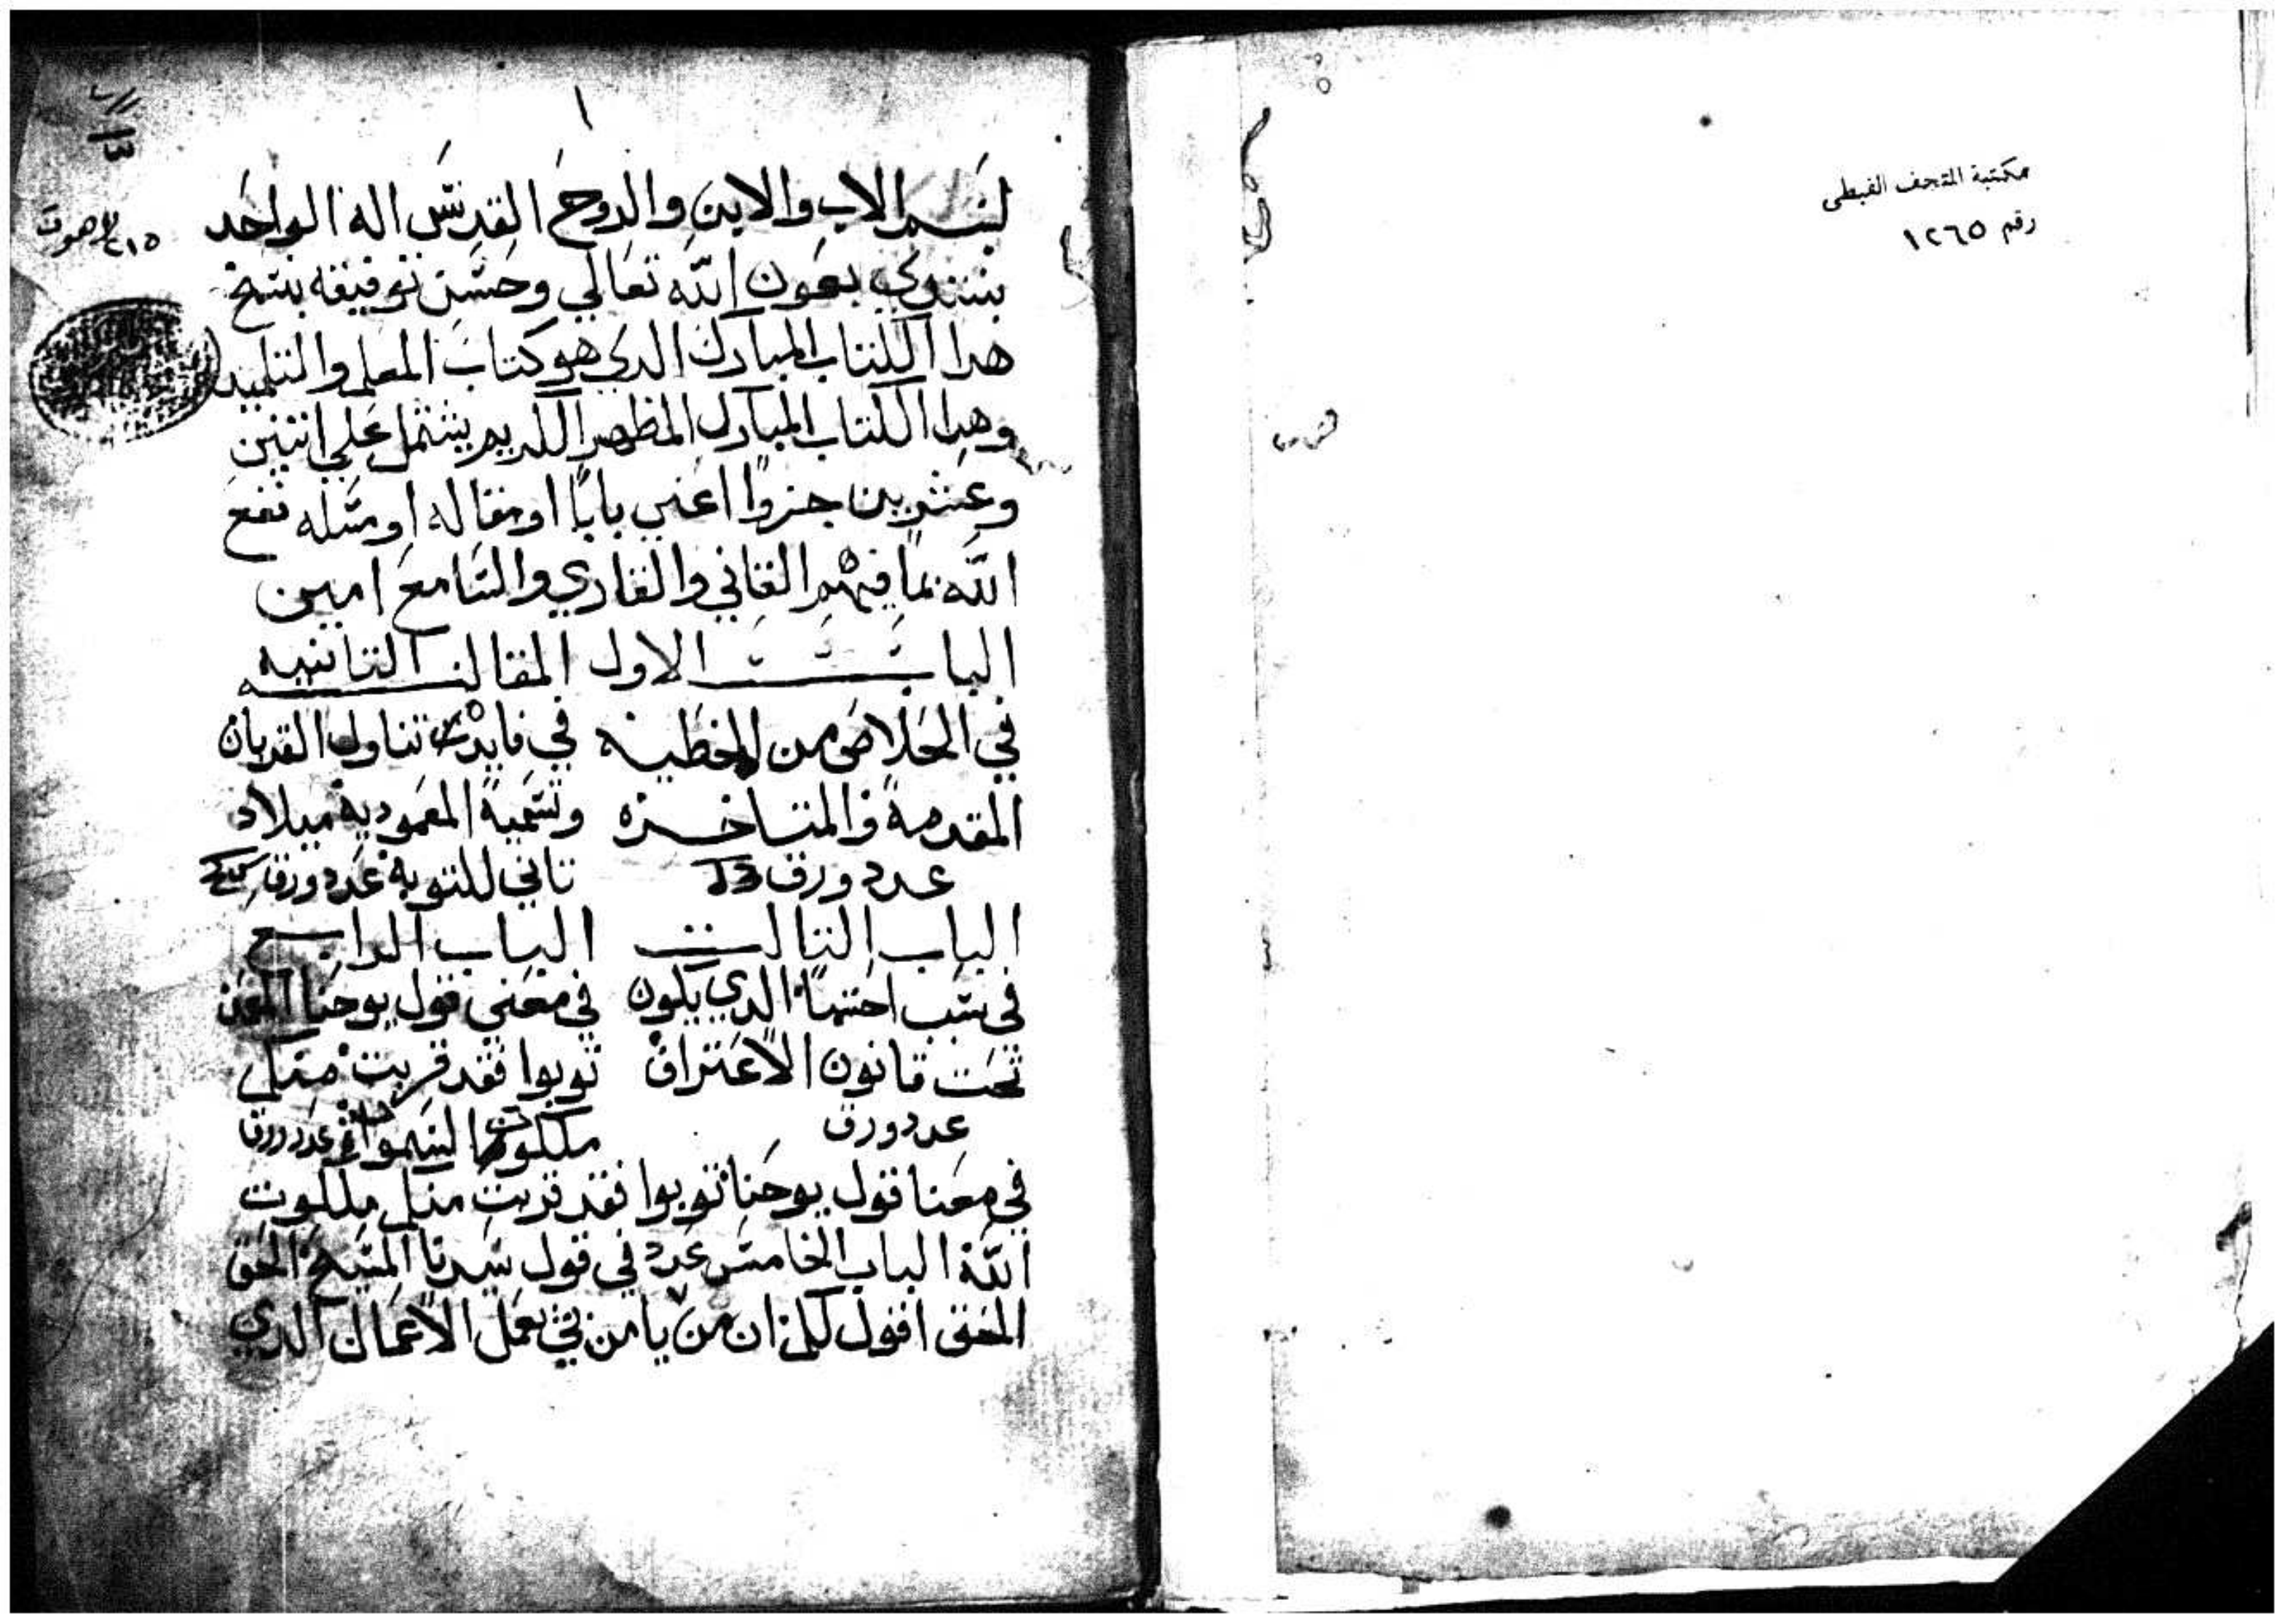 مكتبة المتحف القبطى
رقم ١٢٦٥
١
٢١٥ لاهوت
بسم الاب والابن والروح القدس اله الواحد
نبتدي بعون الله تعالي وحسن توفيقه بنسخ
هدا الكتاب المبارك الدي هو كتاب المعلم والتلميد
وهدا الكتاب المبارك المطهر الكريم يشتمل علي اتنين
وعشرين جزوا اعني بابا او مقاله او مسله نفع
الله بما فيهم القاني والقاري والسامع امين
الباب الاول
في الخلاص من الخطيه
المقدمة والمتاخره
عدد ورق
المقاله التانيه
في فايدت تناول القربان
وتسمية المعمودية ميلاد
تاني للتوبة عدد ورق
الباب التالت
في سبب احتها الدي يكون
تحت قانون الاعتراف
عدد ورق
الباب الرابع
في معني قول يوحنا المعمدان
توبوا فقد قربت منكم
ملكوت السموات عدد ورق
في معنا قول يوحنا توبوا فقد قربت منكم ملكوت
الله الباب الخامس عدد في قول سيدنا المسيح الحق
الحق اقول لكم ان من يامن بي يعمل الاعمال الدي